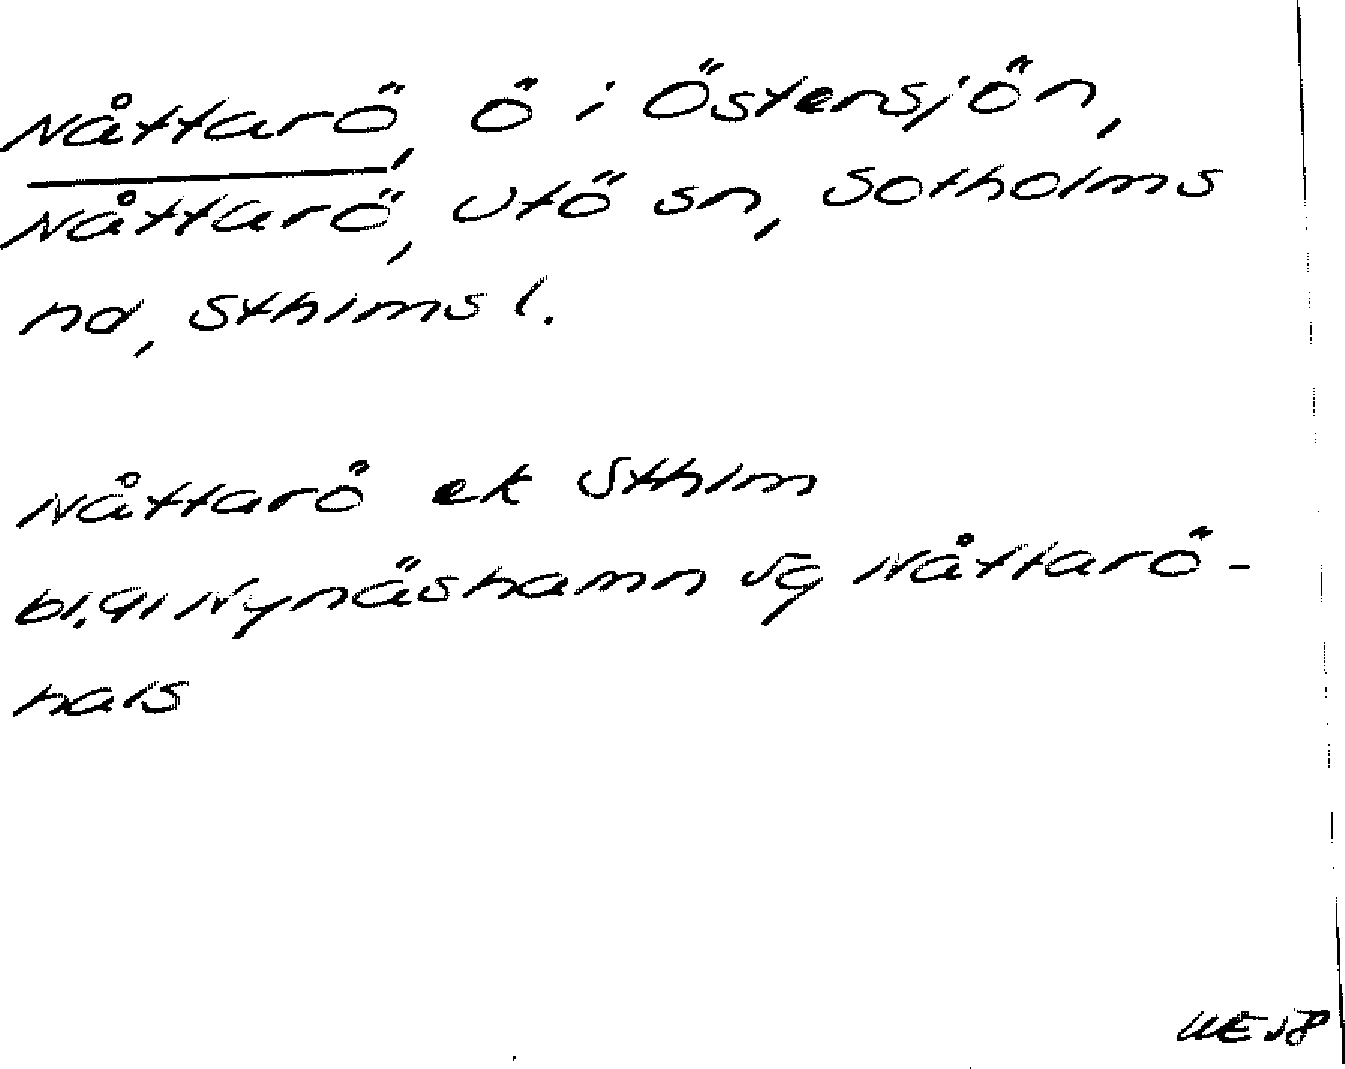 Nåttarö, ö i Östensjön,
Nåttarö, Utö sn, Sotholms
hd, Sthlms l.
Nåttarö ek Sthlm
bl. 9I Nynäshamn Sg Nåttarö-
hals